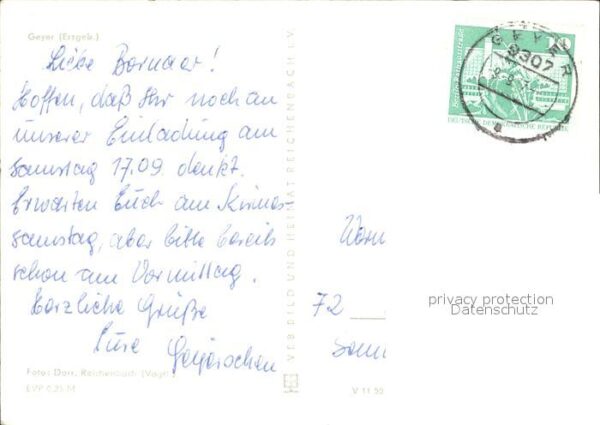 Geyer (Erzgeb.)
Liebe Bornaer!
Hoffen, daß Ihr noch an
unserer Einladung am
Samstag 17.09. denkt.
Erwarten Euch am Kirmes-
samstag, aber bitte bereits
schon am Vormittag.
Herzliche Grüße
Eure Geyerschen
Foto: Darr, Reichenbach (Vogtl.)
EVP 0,25 M
VEB BILD UND HEIMAT REICHENBACH I. V.
V 11 50
GEYER
9307
10
DEUTSCHE DEMOKRATISCHE REPUBLIK
72
privacy protection
Datenschutz